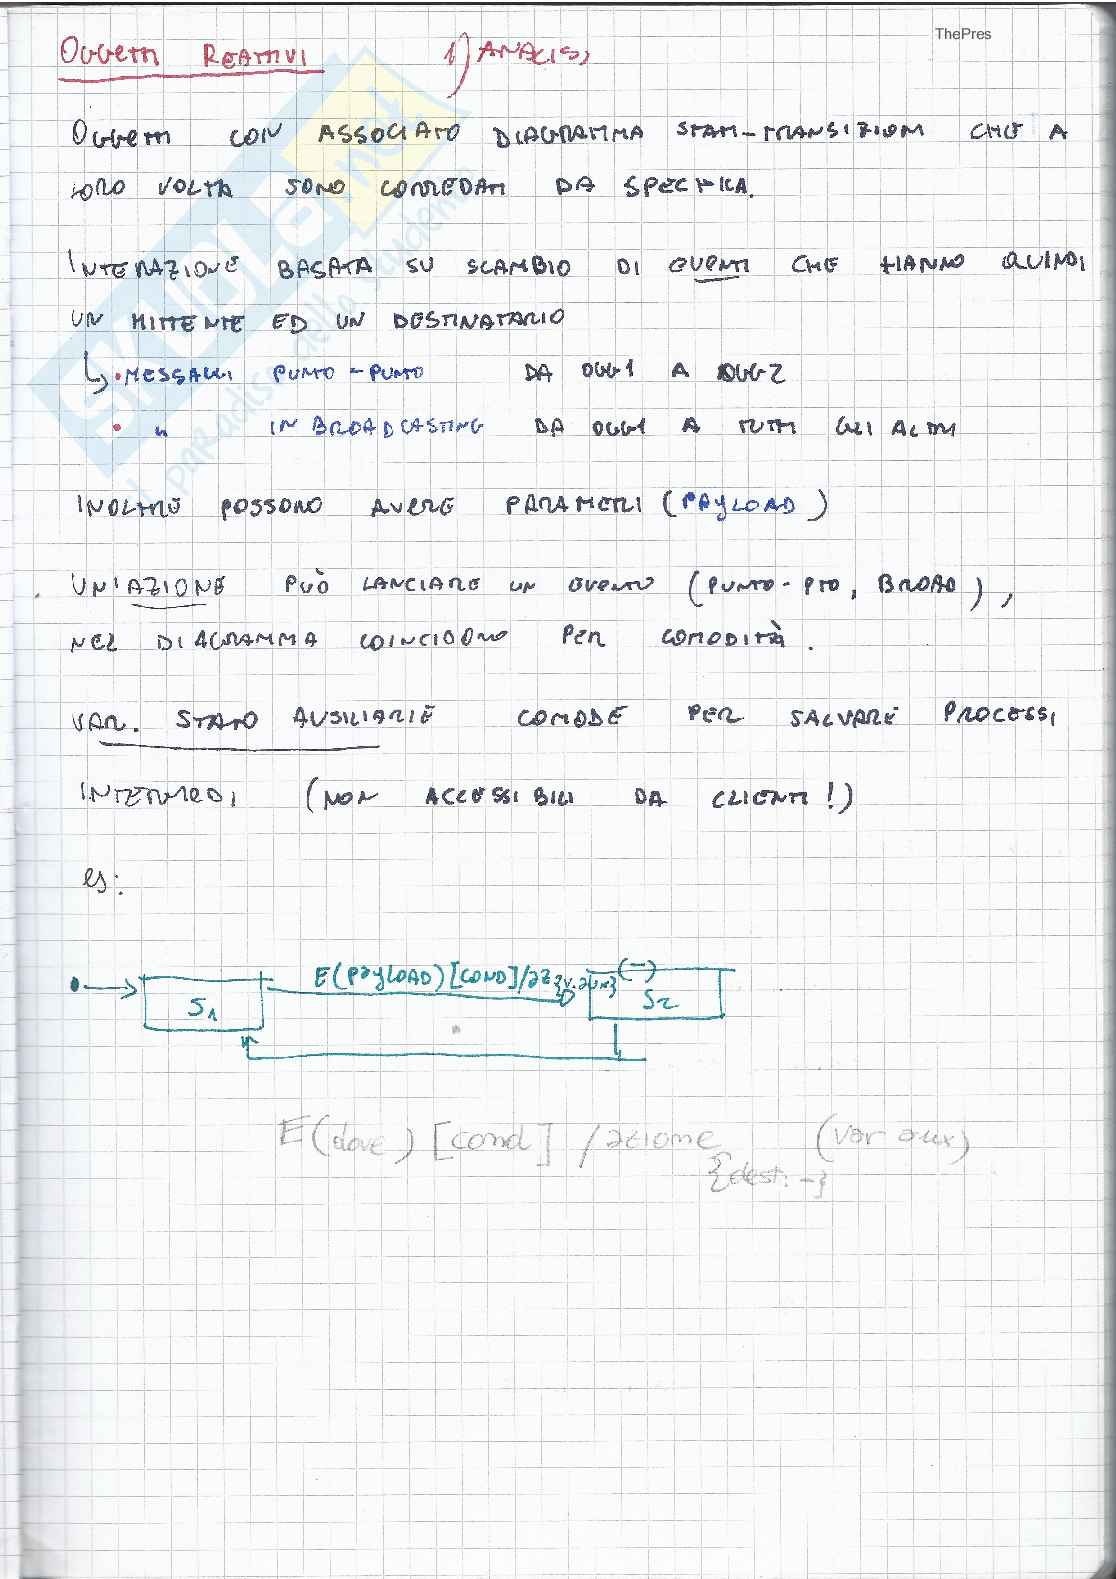 ThePres
OGGETTI REATTIVI 1) ANALISI
OGGETTI CON ASSOCIATO DIAGRAMMA STATI-TRANSIZIONI CHE A
LORO VOLTA SONO CORREDATI DA SPECIFICA.
INTERAZIONE BASATA SU SCAMBIO DI EVENTI CHE HANNO QUINDI
UN MITTENTE ED UN DESTINATARIO
↳ • MESSAGGI PUNTO-PUNTO DA OGG1 A OGG2
• " IN BROADCASTING DA OGG1 A TUTTI GLI ALTRI
INOLTRE POSSONO AVERE PARAMETRI (PAYLOAD)
UN'AZIONE PUÒ LANCIARE UN EVENTO (PUNTO-PTO, BROAD),
NEL DIAGRAMMA COINCIDONO PER COMODITÀ.
VAR. STATO AUSILIARIE COMODE PER SALVARE PROCESSI
INTERMEDI (NON ACCESSIBILI DA CLIENTI!)
es:
E(PAYLOAD)[COND]/az{v.aux} (-)
S1 S2
E(dove)[cond]/azione (var aux)
{dest: -}
SKUOLA.net
il paradiso dello studente